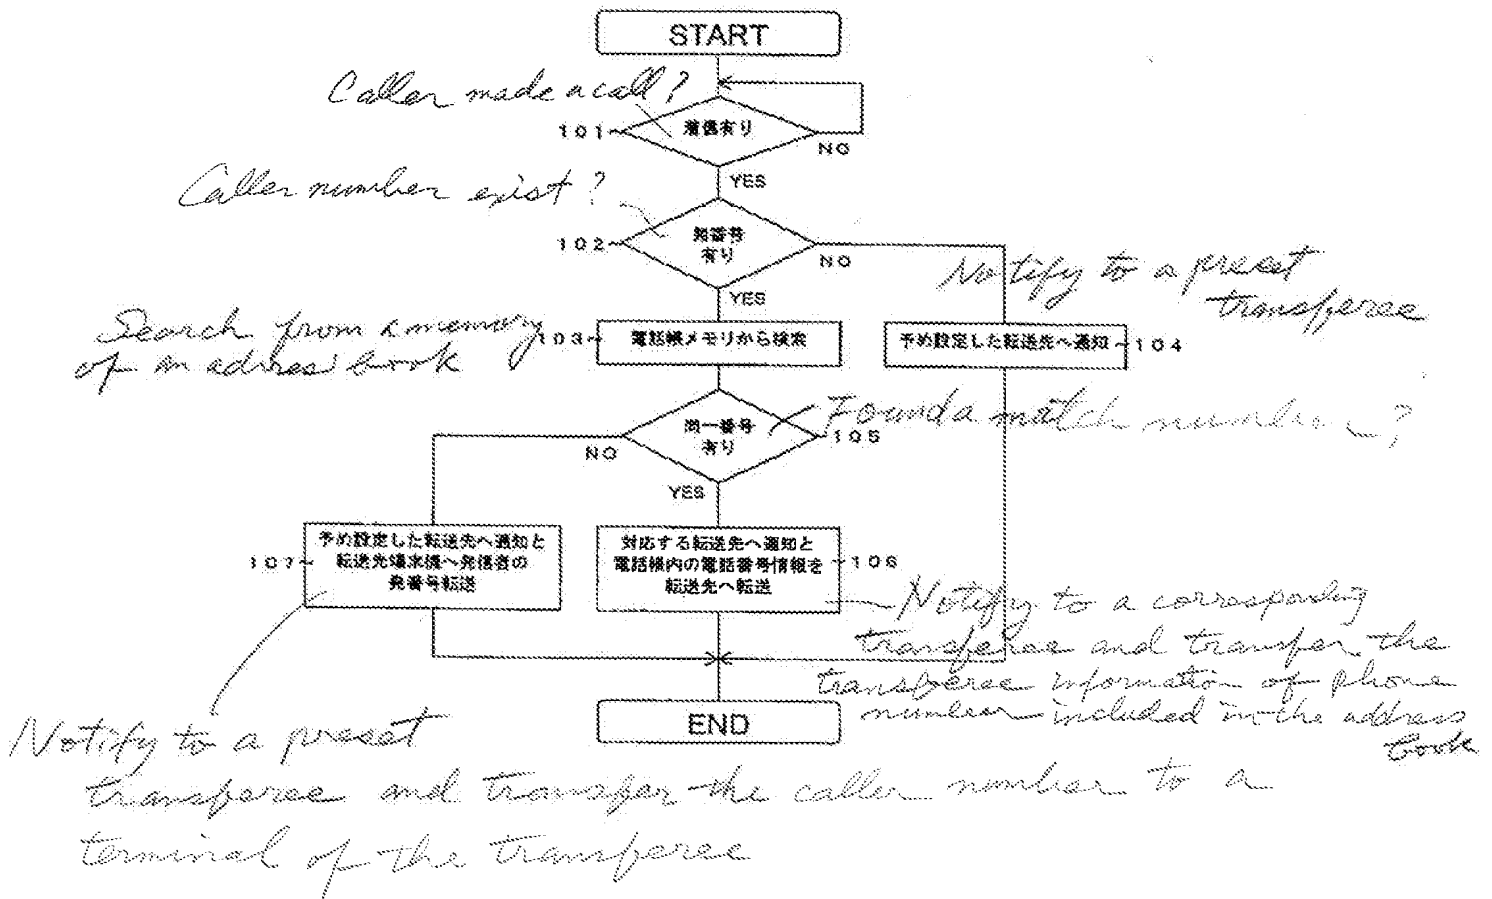 START
Caller made a call?
101
着信有り
NO
YES
Caller number exist?
102
発番号
有り
NO
YES
Notify to a preset
transferee
Search from a memory
of an adress book
103
電話帳メモリから検索
予め設定した転送先へ通知
104
Found a match number?
同一番号
有り
105
NO
YES
107
予め設定した転送先へ通知と
転送先端末機へ発信者の
発番号転送
対応する転送先へ通知と
電話帳内の電話番号情報を
転送先へ転送
106
Notify to a corresponding
transferee and transfer the
transferee information of phone
number included in the address
book
END
Notify to a preset
transferee and transfer the caller number to a
terminal of the transferee